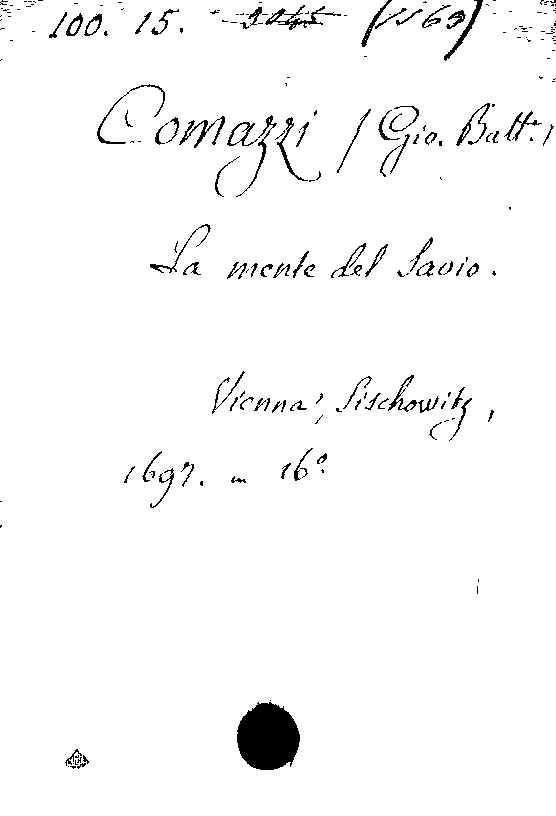 100. 15. (VS 63)
Comazzi / Gio. Batt.a /
La mente del Savio.
Vienna, Sischowitz,
1697. in 16º